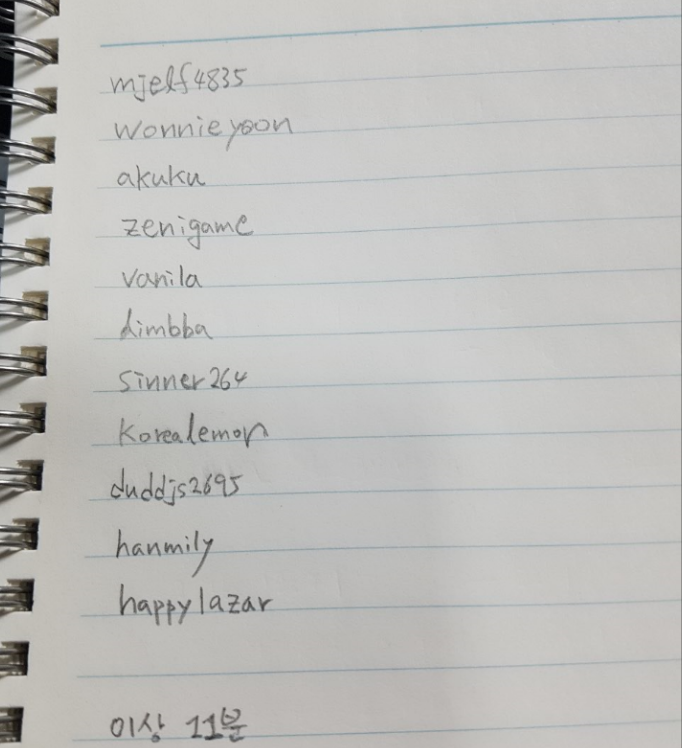 mjelf4835
wonnieyoon
akuku
zenigame
vanila
himbba
sinner264
korealemon
duddjs2695
hanmily
happylazar
이상 11분